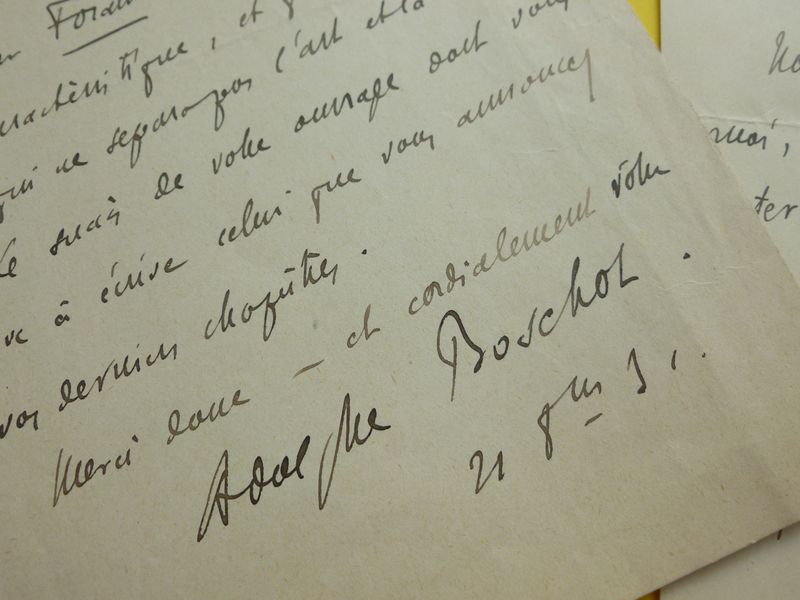 caractéristique, et
qui ne sépare pas l'art et la
le succès de votre ouvrage dont vous
à écrire celui que vous annoncez
vos derniers chapitres.
Merci donc – et cordialement vôtre
Adolphe Boschot.
21
moi,
ter